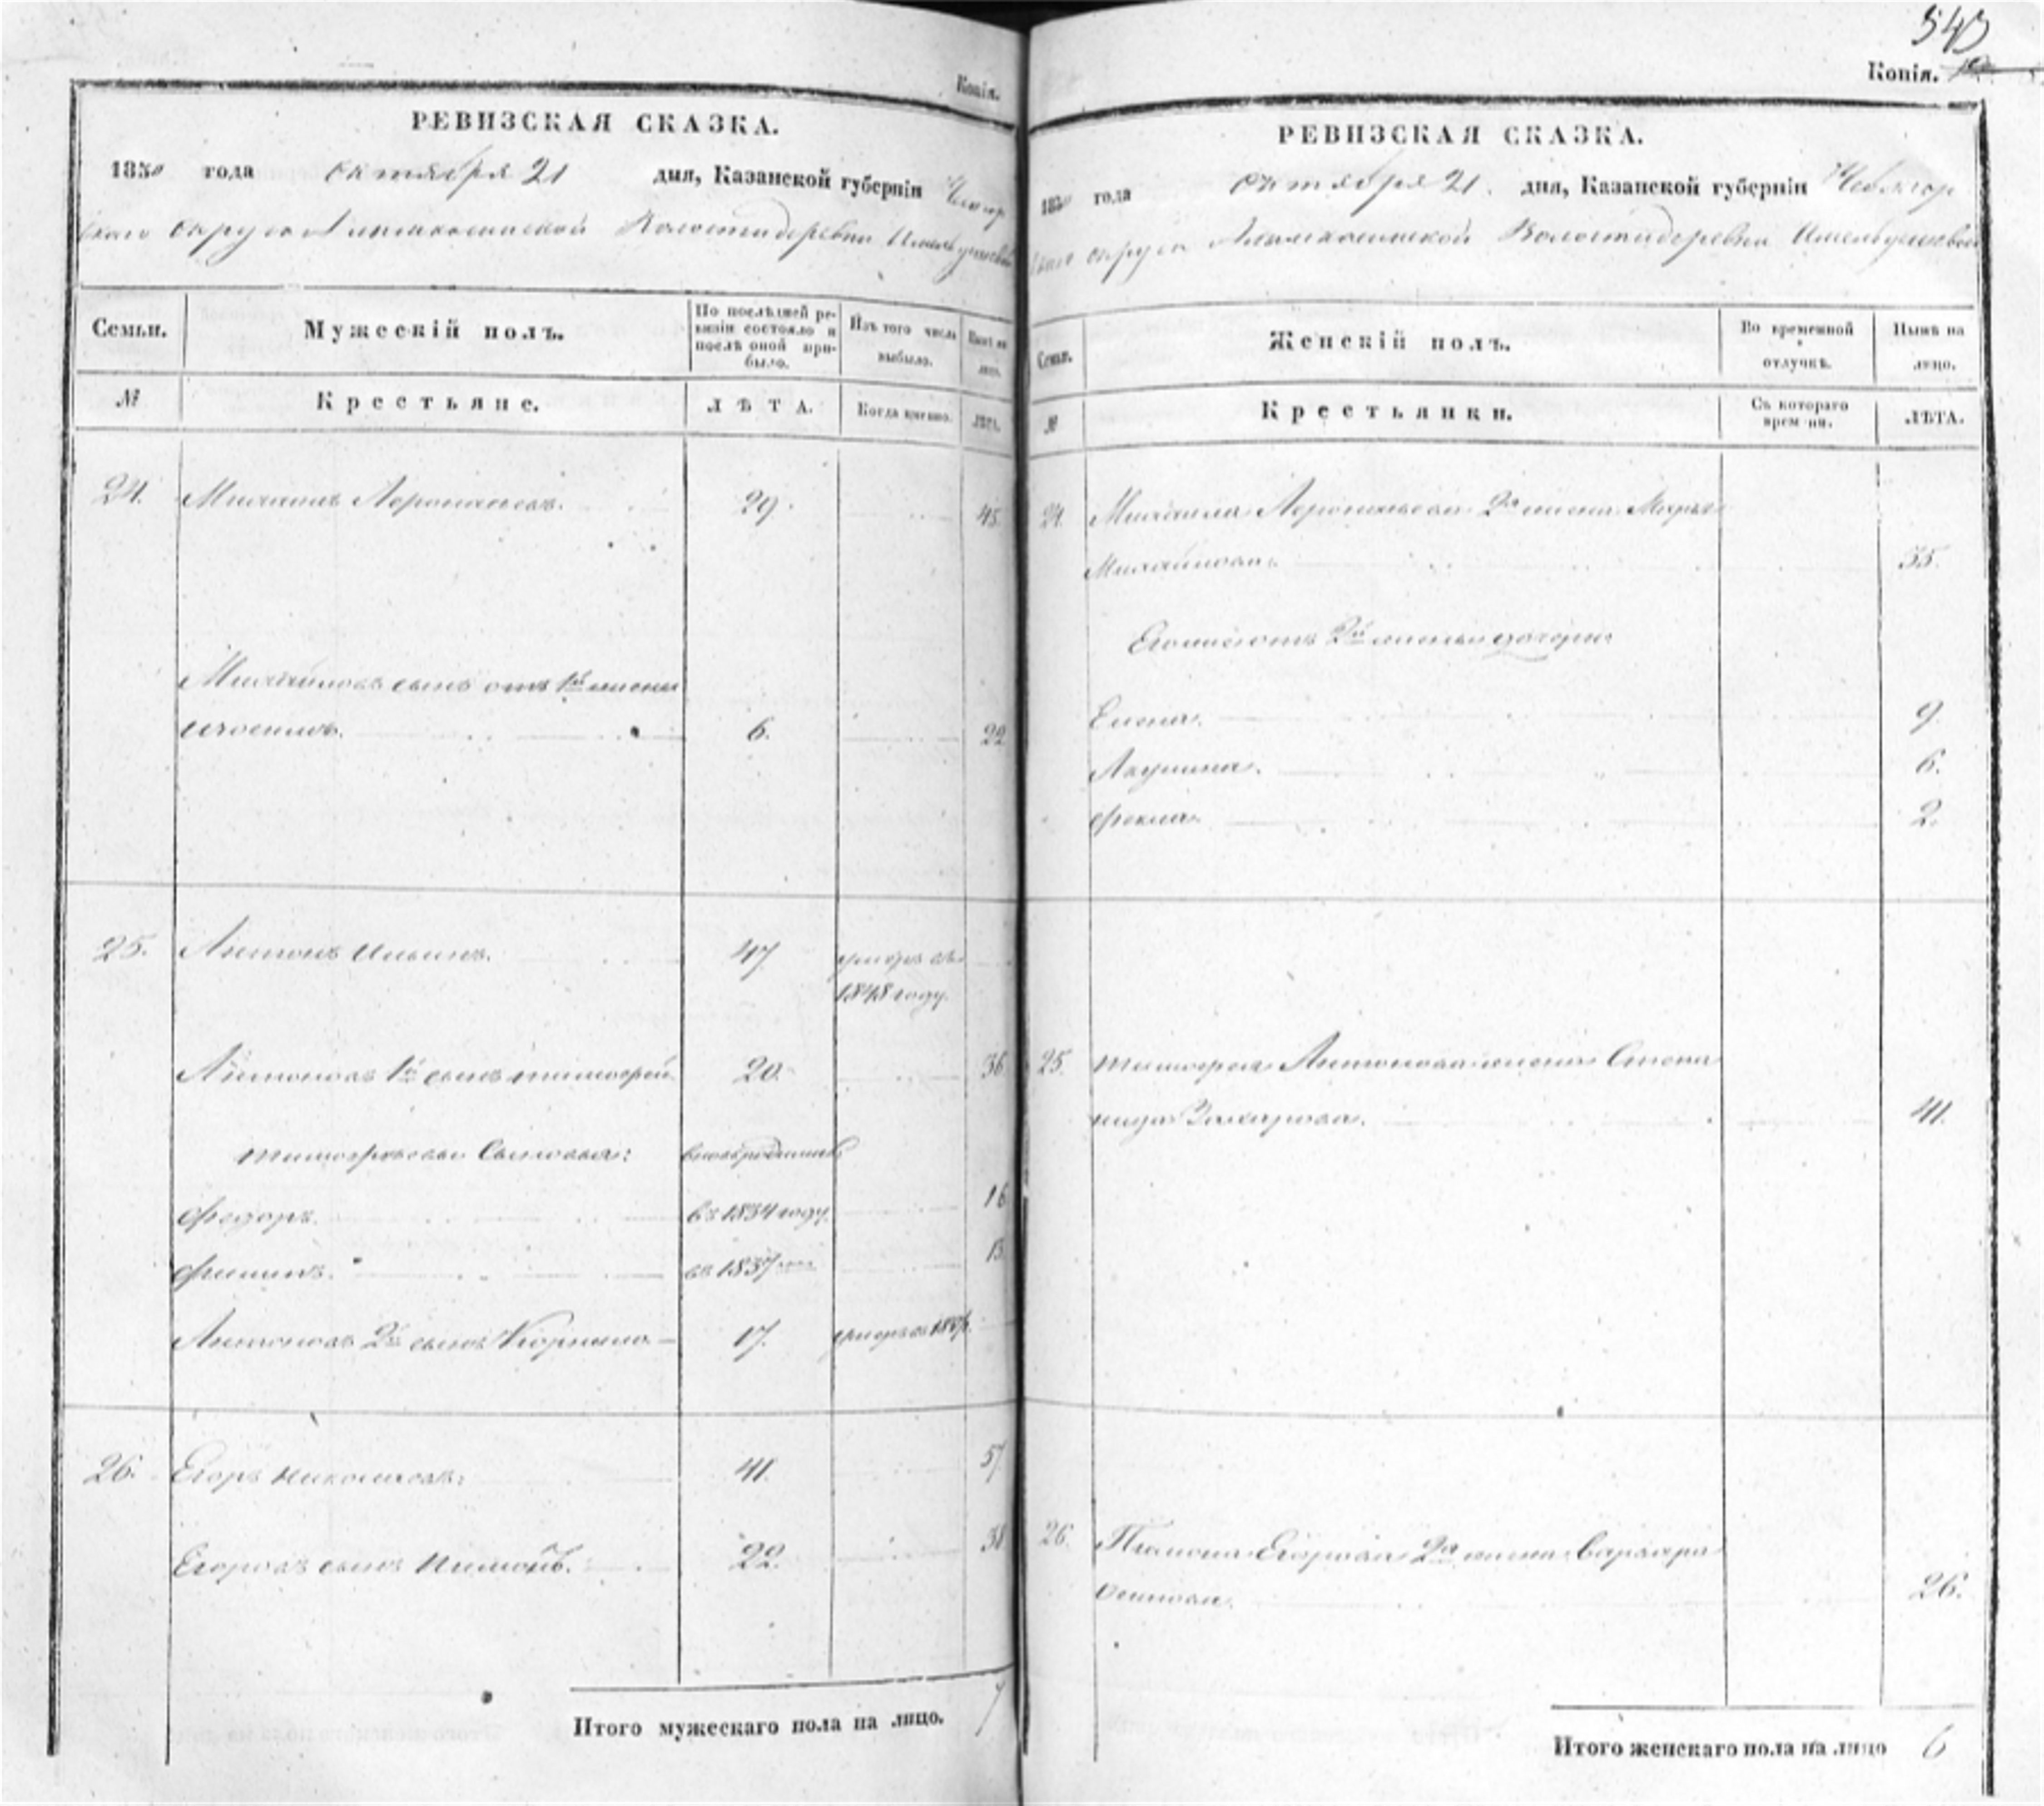 Копія.
РЕВИЗСКАЯ СКАЗКА.
1850 года октября 21 дня, Казанской губерніи
скаго округа Волости деревни
Семьи. Мужескій полъ. По послѣдней ре-
визіи состояло и
послѣ оной при-
было. Изъ того числа
выбыло. Нынѣ на
лицо.
№ Крестьяне. ЛѢТА. Когда именно. ЛѢТА.
24. Михаилъ 29. 45.
Михайловъ сынъ отъ 1й жены
6. 22
25. Антонъ Ильинъ. 47 умеръ въ
1848 году.
Антоновъ 1й сынъ Тимофей 20. 36
Тимофеевы сыновья: вновь рожденный
Федоръ. въ 1834 году. 16
Филипъ. въ 1837 13
Антоновъ 2й сынъ Корнило 17. умеръ въ
26. Егоръ Николаевъ: 41. 57
Егоровъ сынъ Пимонъ. 22. 38
Итого мужескаго пола на лицо. 7
543
Копія.
РЕВИЗСКАЯ СКАЗКА.
1850 года октября 21. дня, Казанской губерніи
скаго округа Волости деревни
Семьи. Женскій полъ. Во временной
отлучкѣ. Нынѣ на
лицо.
№ Крестьянки. Съ котораго
времени. ЛѢТА.
24. Михаила 2я жена Марья
Михайлова. 35.
Его же отъ 2й жены дочери
Елена. 9.
Акулина. 6.
Фекла. 2.
25. Тимофея Антонова жена Степа
нида Захарова. 41.
26. Пимона Егорова 2я жена Варвара
Осипова. 26.
Итого женскаго пола на лицо 6